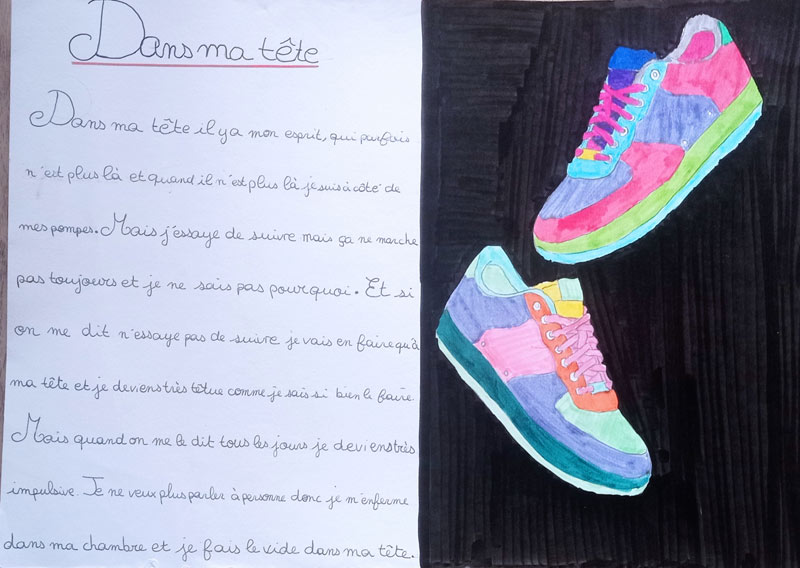 Dans ma tête
Dans ma tête il y a mon esprit, qui parfois
n'est plus là et quand il n'est plus là je suis à côté de
mes pompes. Mais j'éssaye de suivre mais ça ne marche
pas toujours et je ne sais pas pourquoi. Et si
on me dit n'essaye pas de suivre je vais en faire qu'à
ma tête et je deviens très têtue comme je sais si bien le faire.
Mais quand on me le dit tous les jours je deviens très
impulsive. Je ne veux plus parler à personne donc je m'enferme
dans ma chambre et je fais le vide dans ma tête.